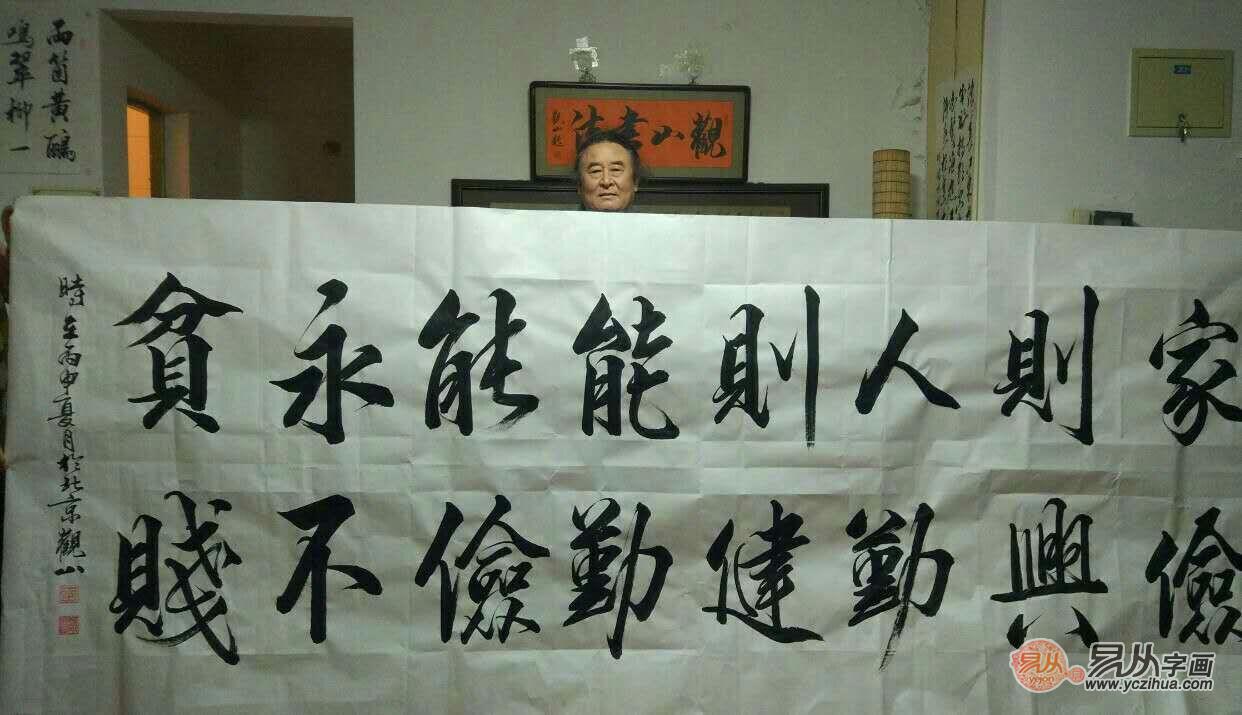 兩箇黃鸝
鳴翠柳一
觀山書法
觀山題
家儉
則興
人勤
則健
能勤
能儉
永不
貧賤
時在丙申夏月於北京觀山
易从
易从字画
www.yczihua.com